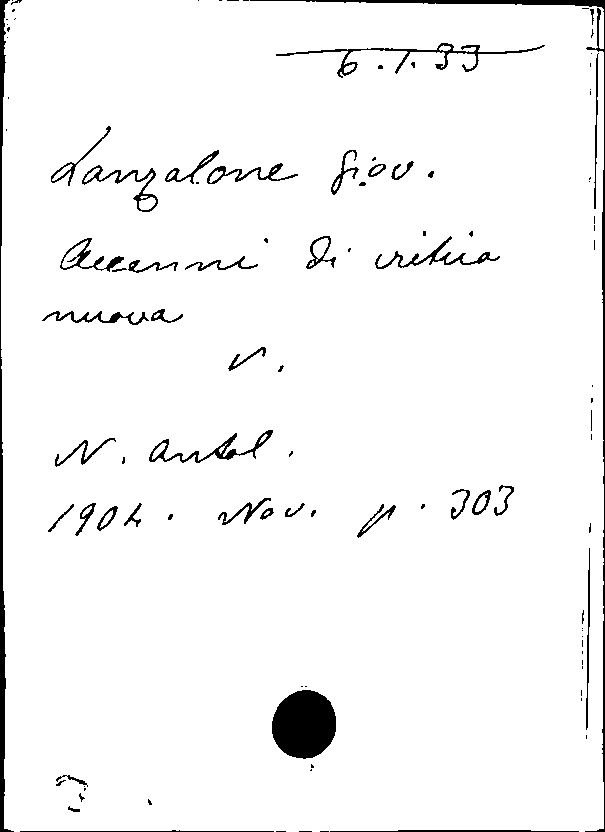 6.1.33
Lanzalone Giov.
Accenni di critica
nuova
v.
N. Antol.
1904. Nov. p. 303